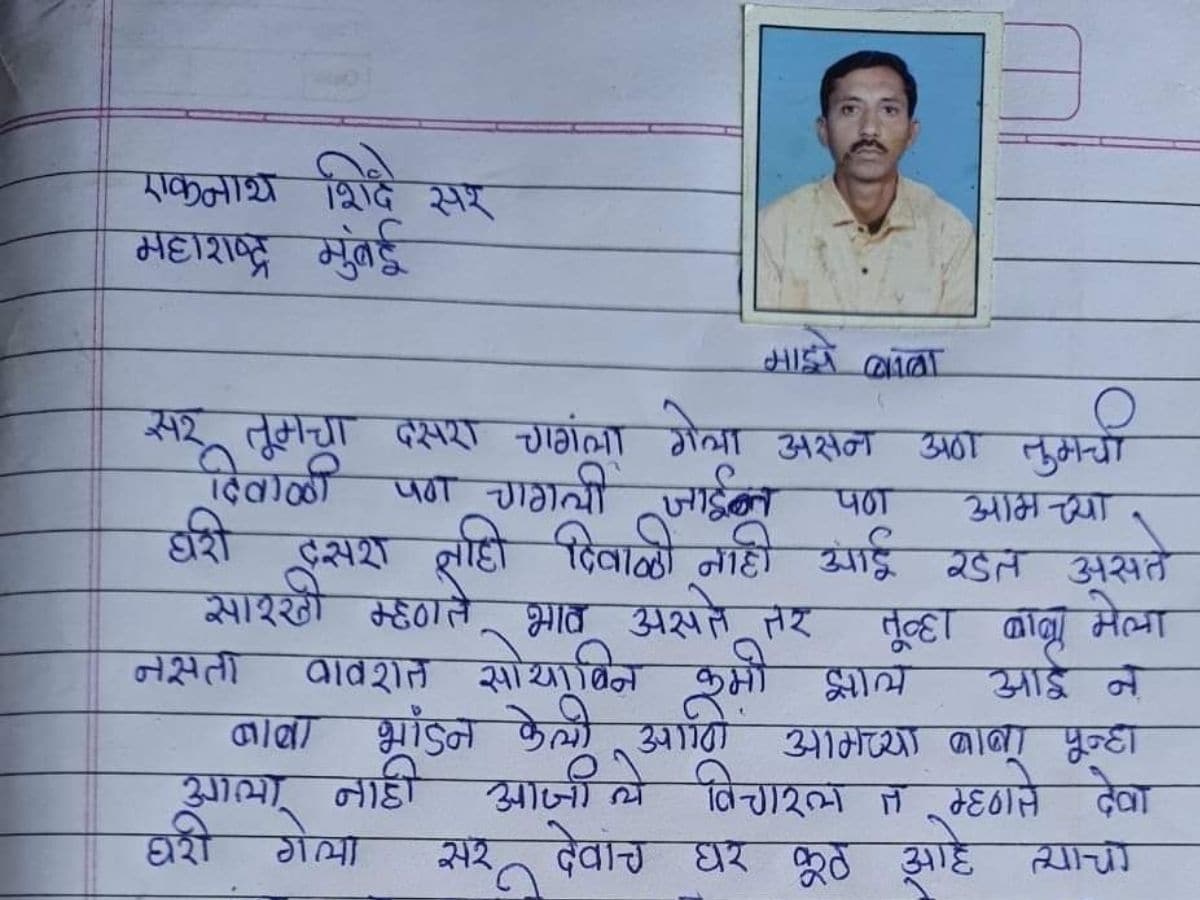 एकनाथ शिंदे सर
महाराष्ट्र मुंबई
माझे बाबा
सर तूमचा दसरा चागंला गेला असन अण तुमची
दिवाळी पण चागली जाईल पण आमच्या
घरी दसरा नाही दिवाळी नाही आई रडत असते
सारखी म्हणते भाव असते तर तूव्हा बाबा मेला
नसता वावरात सोयाबिन कमी झाल आई न
बाबा भांडन केली आणि आमच्या बाबा पून्हा
आला नाही आजी ले विचारल त म्हणते देवा
घरी गेला सर देवाच घर कूठ आहे त्याचा